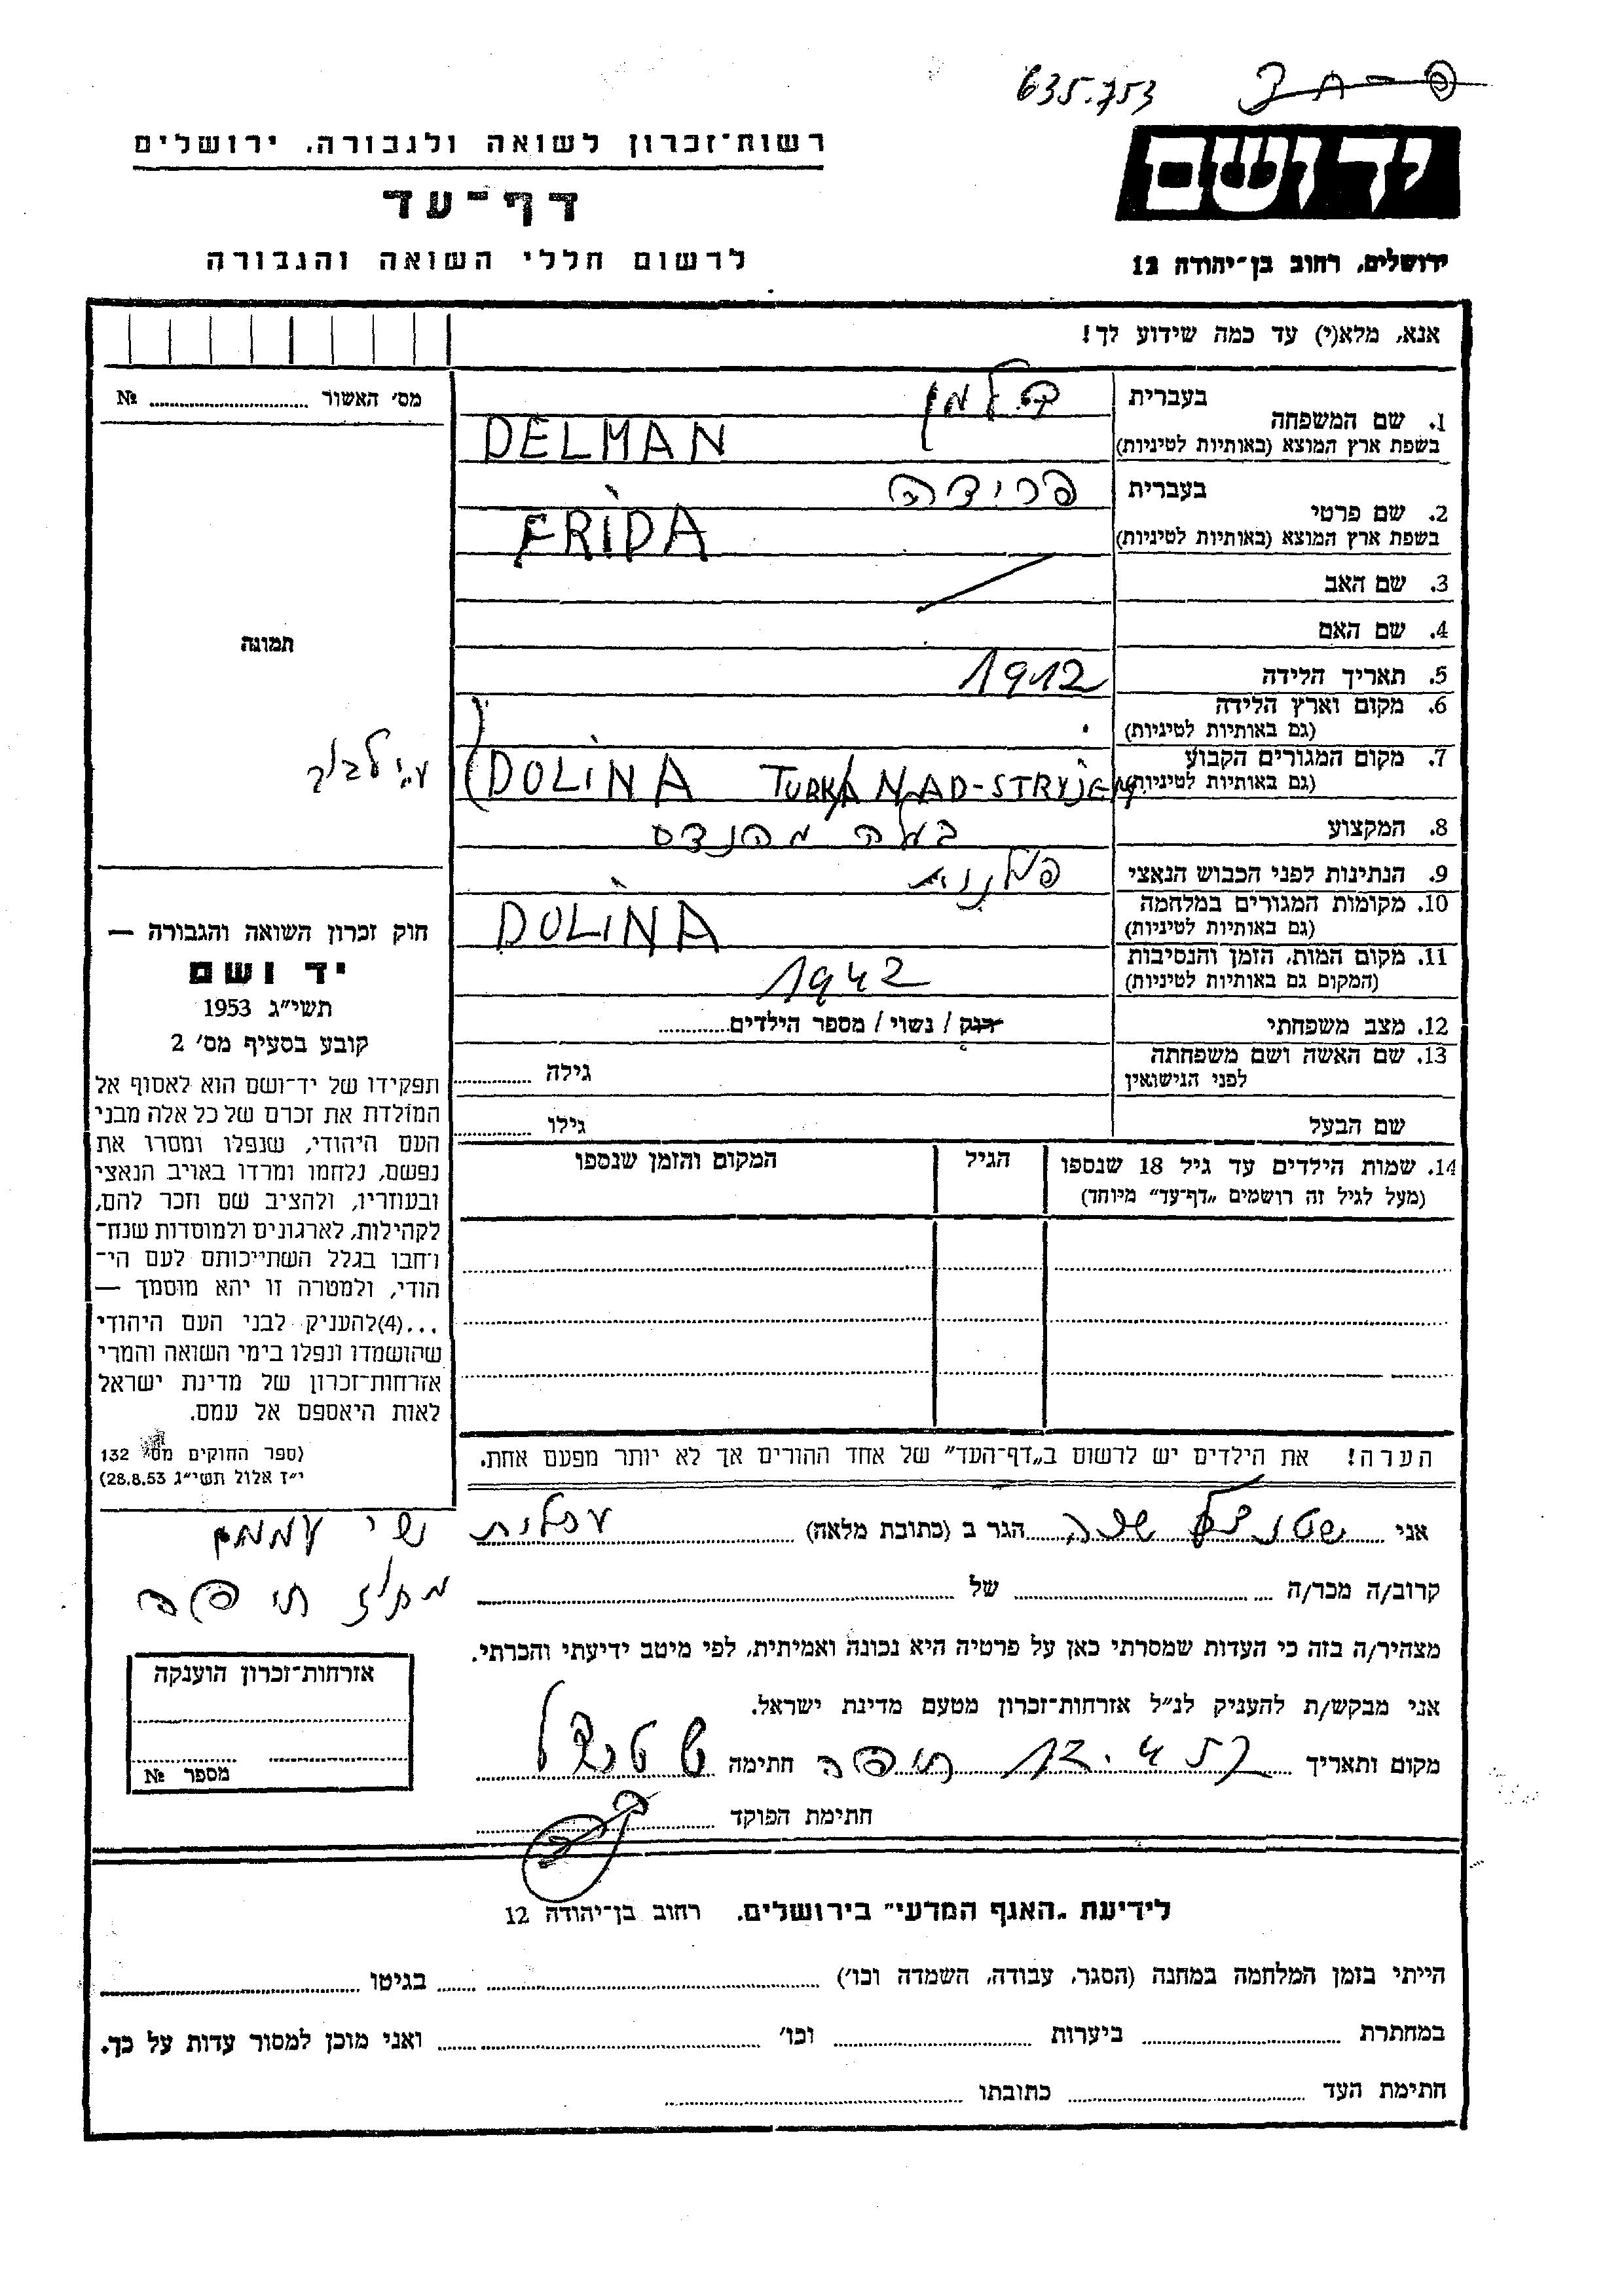 635.753
רשות־זכרון לשואה ולגבורה, ירושלים
דף־עד
לרשום חללי השואה והגבורה
יד ושם
ירושלים, רחוב בן־יהודה 12
אנא, מלא(י) עד כמה שידוע לך!
מס׳ האשור № 
תמונה
1. שם המשפחה
בעברית
דלמן
בשפת ארץ המוצא (באותיות לטיניות)
DELMAN
2. שם פרטי
בעברית
פרידה
בשפת ארץ המוצא (באותיות לטיניות)
FRIDA
3. שם האב
4. שם האם
5. תאריך הלידה
1912
6. מקום וארץ הלידה
(גם באותיות לטיניות)
7. מקום המגורים הקבוע
(גם באותיות לטיניות)
DOLINA TURKA NAD-STRYJEM
8. המקצוע
בעלה מהנדס
9. הנתינות לפני הכבוש הנאצי
פולנית
10. מקומות המגורים במלחמה
(גם באותיות לטיניות)
DOLINA
11. מקום המות, הזמן והנסיבות
(המקום גם באותיות לטיניות)
1942
12. מצב משפחתי
רווק / נשוי / מספר הילדים
13. שם האשה ושם משפחתה
לפני הנישואין
גילה
שם הבעל
גילו
14. שמות הילדים עד גיל 18 שנספו
(מעל לגיל זה רושמים „דף־עד” מיוחד)
הגיל
המקום והזמן שנספו
חוק זכרון השואה והגבורה —
יד ושם
תשי״ג 1953
קובע בסעיף מס׳ 2
תפקידו של יד־ושם הוא לאסוף אל
המולדת את זכרם של כל אלה מבני
העם היהודי, שנפלו ומסרו את
נפשם, נלחמו ומרדו באויב הנאצי
ובעוזריו, ולהציב שם וזכר להם,
לקהילות, לארגונים ולמוסדות שנח־
רחבו בגלל השתייכותם לעם הי־
הודי, ולמטרה זו יהא מוסמך —
...(4)להעניק לבני העם היהודי
שהושמדו ונפלו בימי השואה והמרי
אזרחות־זכרון של מדינת ישראל
לאות היאספם אל עמם.
(ספר החוקים מס׳ 132
י״ז אלול תשי״ג 28.8.53)
הערה! את הילדים יש לרשום ב„דף־העד” של אחד ההורים אך לא יותר מפעם אחת.
אני שטנצל שרה הגר ב (כתובת מלאה)
חיפה
קרוב/ה מכר/ה של
מצהיר/ה בזה כי העדות שמסרתי כאן על פרטיה היא נכונה ואמיתית, לפי מיטב ידיעתי והכרתי.
אני מבקש/ת להעניק לנ״ל אזרחות־זכרון מטעם מדינת ישראל.
מקום ותאריך 12.4.57 חיפה חתימה
חתימת הפוקד
אזרחות־זכרון הוענקה
מספר №
לידיעת „האגף המדעי” בירושלים. רחוב בן־יהודה 12
הייתי בזמן המלחמה במחנה (הסגר, עבודה, השמדה וכו׳) בגיטו
במחתרת ביערות וכו׳ ואני מוכן למסור עדות על כך.
חתימת העד כתובתו